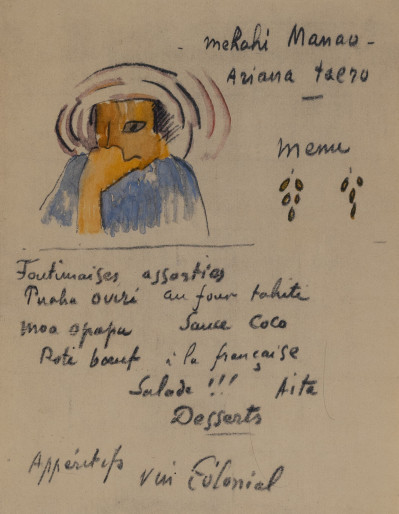 - mehahi Manao -
Ariana taero
Menu
Foutimaises assorties
Puaha ouvri au four tahiti
moa opapa Sauce Coco
Roti bœuf à la française
Salade !!! Aita
Desserts
Appéritifs vin Colonial